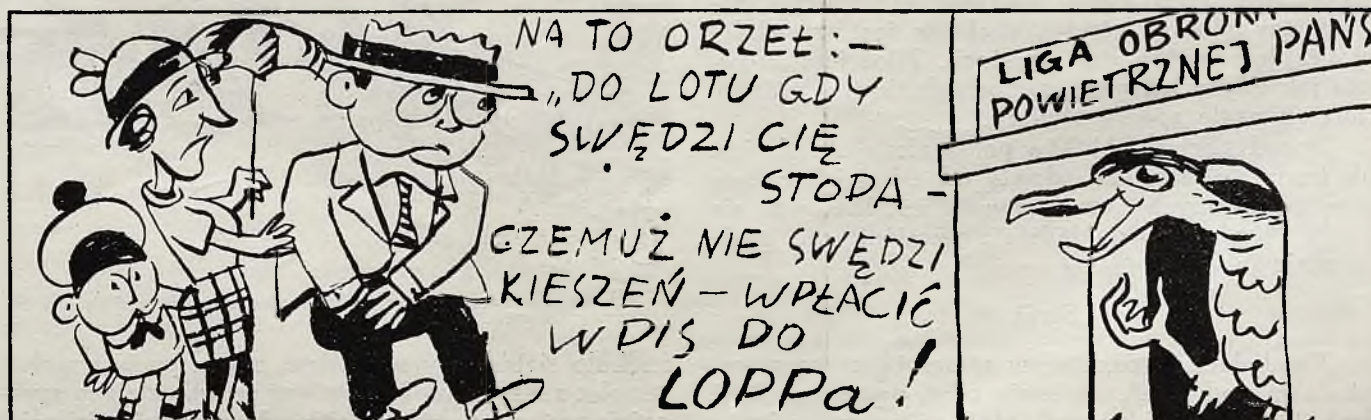 NA TO ORZEŁ:—
„DO LOTU GDY
SWĘDZI CIĘ
STOPA —
CZEMUŻ NIE SWĘDZI
KIESZEŃ — WPŁACIĆ
WPIS DO
LOPPa!
LIGA OBRONY
POWIETRZNEJ PAŃS